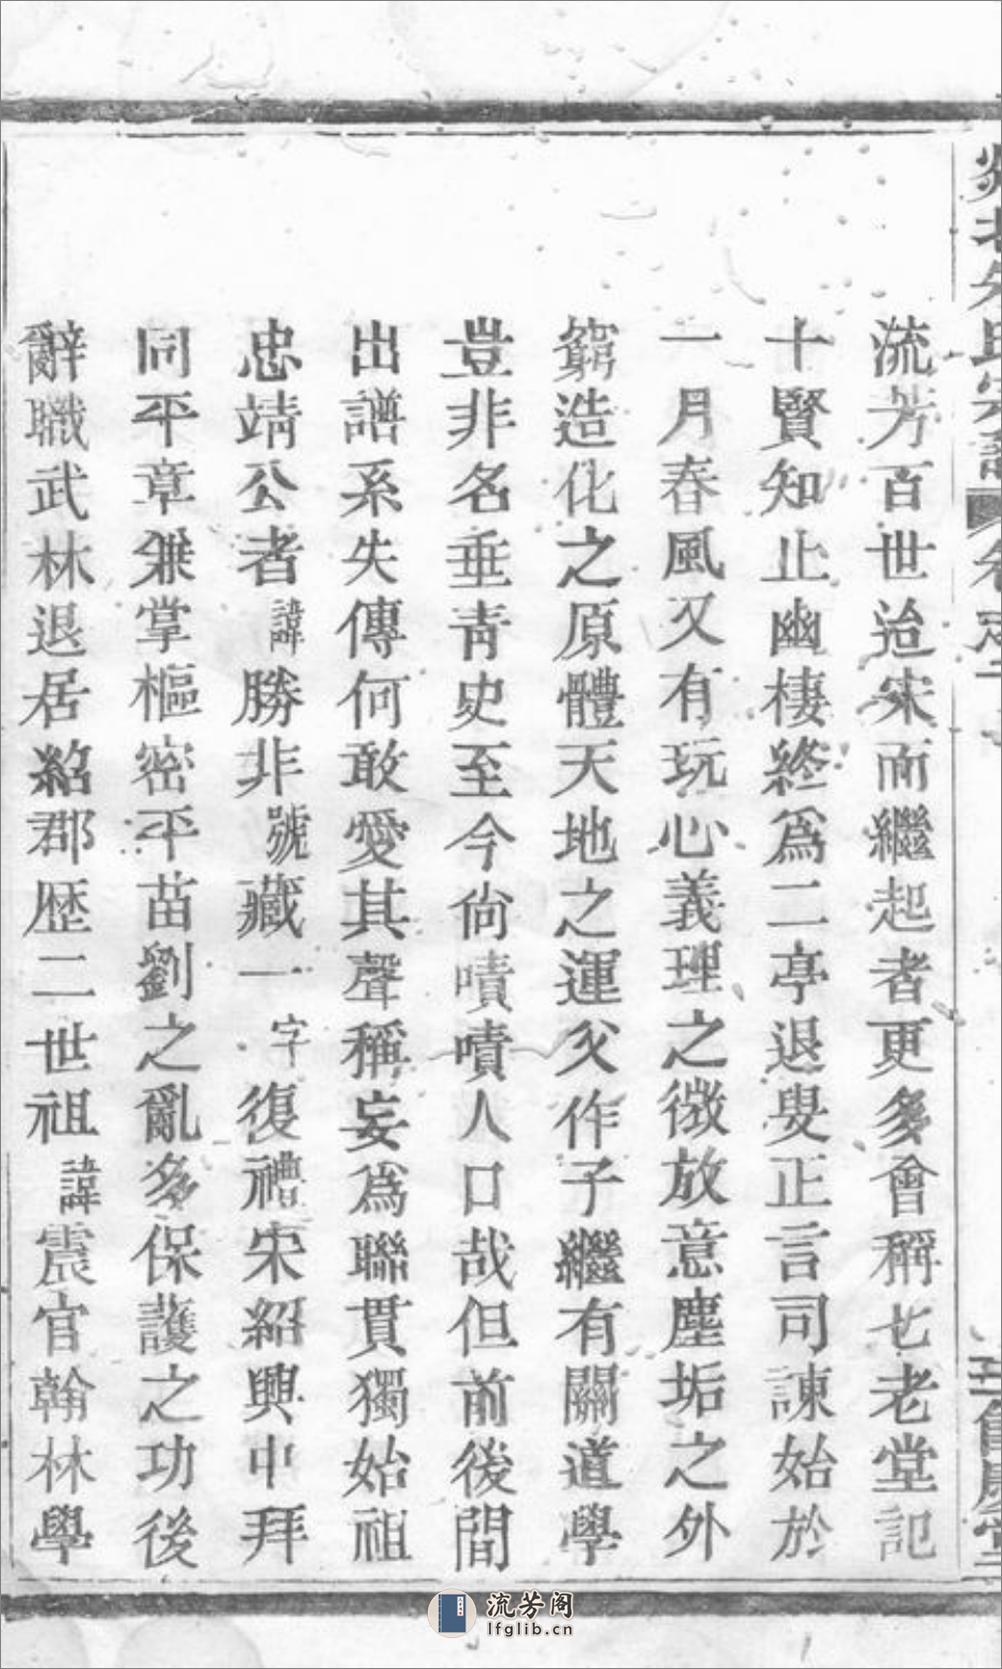 流芳百世迨宋而繼起者更多會稱七老堂記
十賢知止幽棲終爲二亭退叟正言司諫始於
一月春風又有玩心義理之微放意塵垢之外
窮造化之原體天地之運父作子繼有關道學
豈非名垂青史至今尙嘖嘖人口哉但前後間
出譜系失傳何敢愛其聲稱妄爲聯貫獨始祖
忠靖公者諱勝非號藏一字復禮宋紹興中拜
同平章兼掌樞密平苗劉之亂多保護之功後
辭職武林退居紹郡歷二世祖諱震官翰林學
流芳阁
lfglib.cn